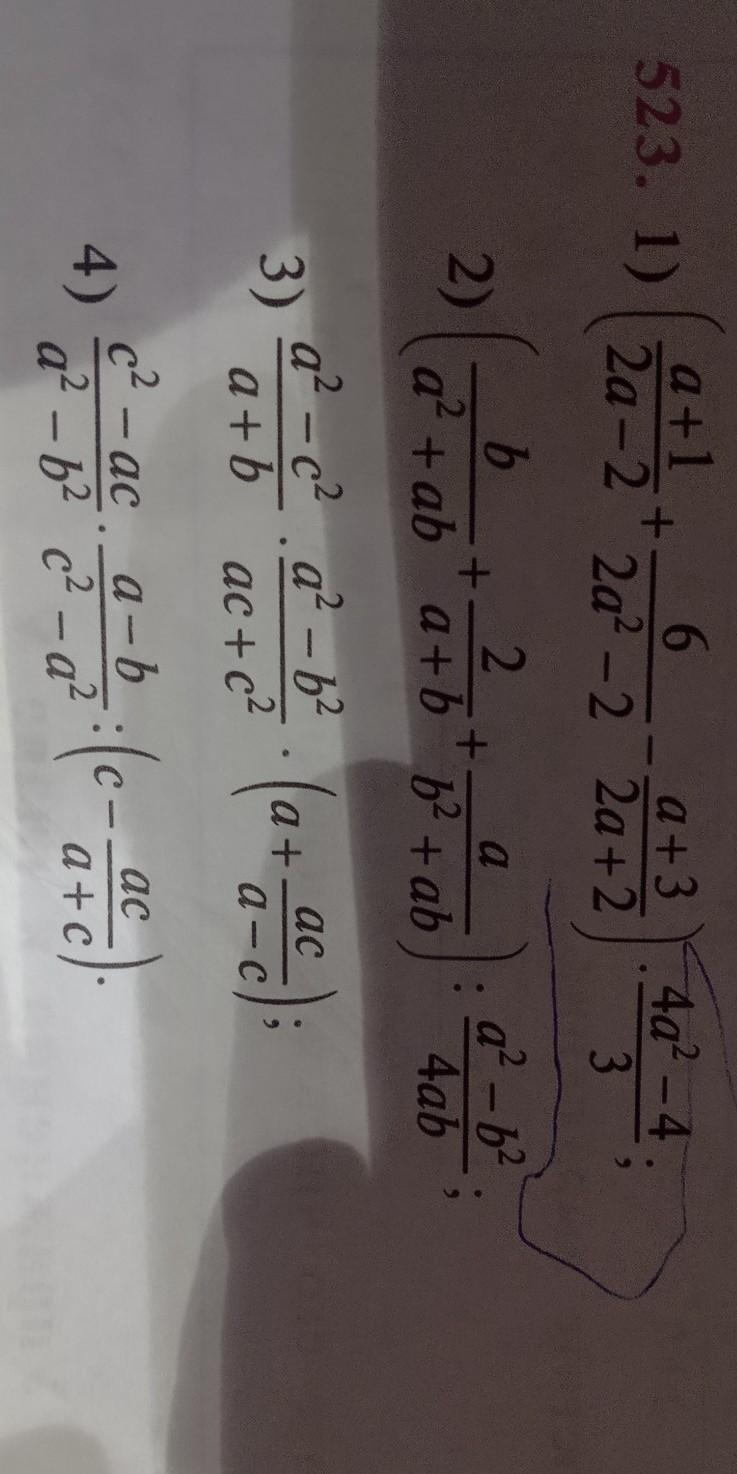 523. 1) ( (a+1)/(2a−2) + 6/(2a²−2) − (a+3)/(2a+2) ) · (4a²−4)/3;
2) ( b/(a²+ab) + 2/(a+b) + a/(b²+ab) ) : (a²−b²)/(4ab);
3) (a²−c²)/(a+b) · (a²−b²)/(ac+c²) · ( a + ac/(a−c) );
4) (c²−ac)/(a²−b²) · (a−b)/(c²−a²) : ( c − ac/(a+c) ).